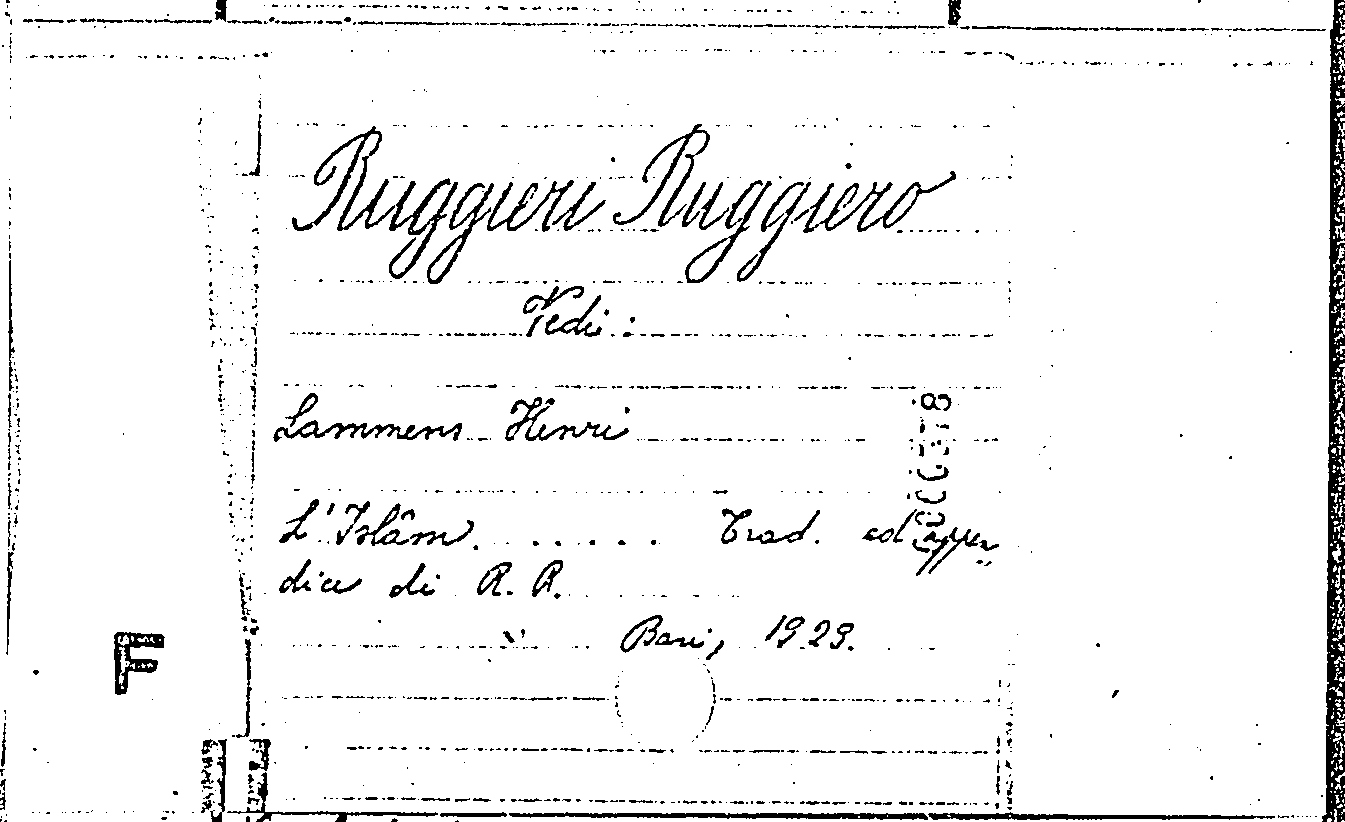 Ruggieri Ruggiero
Vedi:
Lammens Henri
L'Islâm. . . . . . Trad. ed appen
dice di R. R.
Bari, 1929.
F